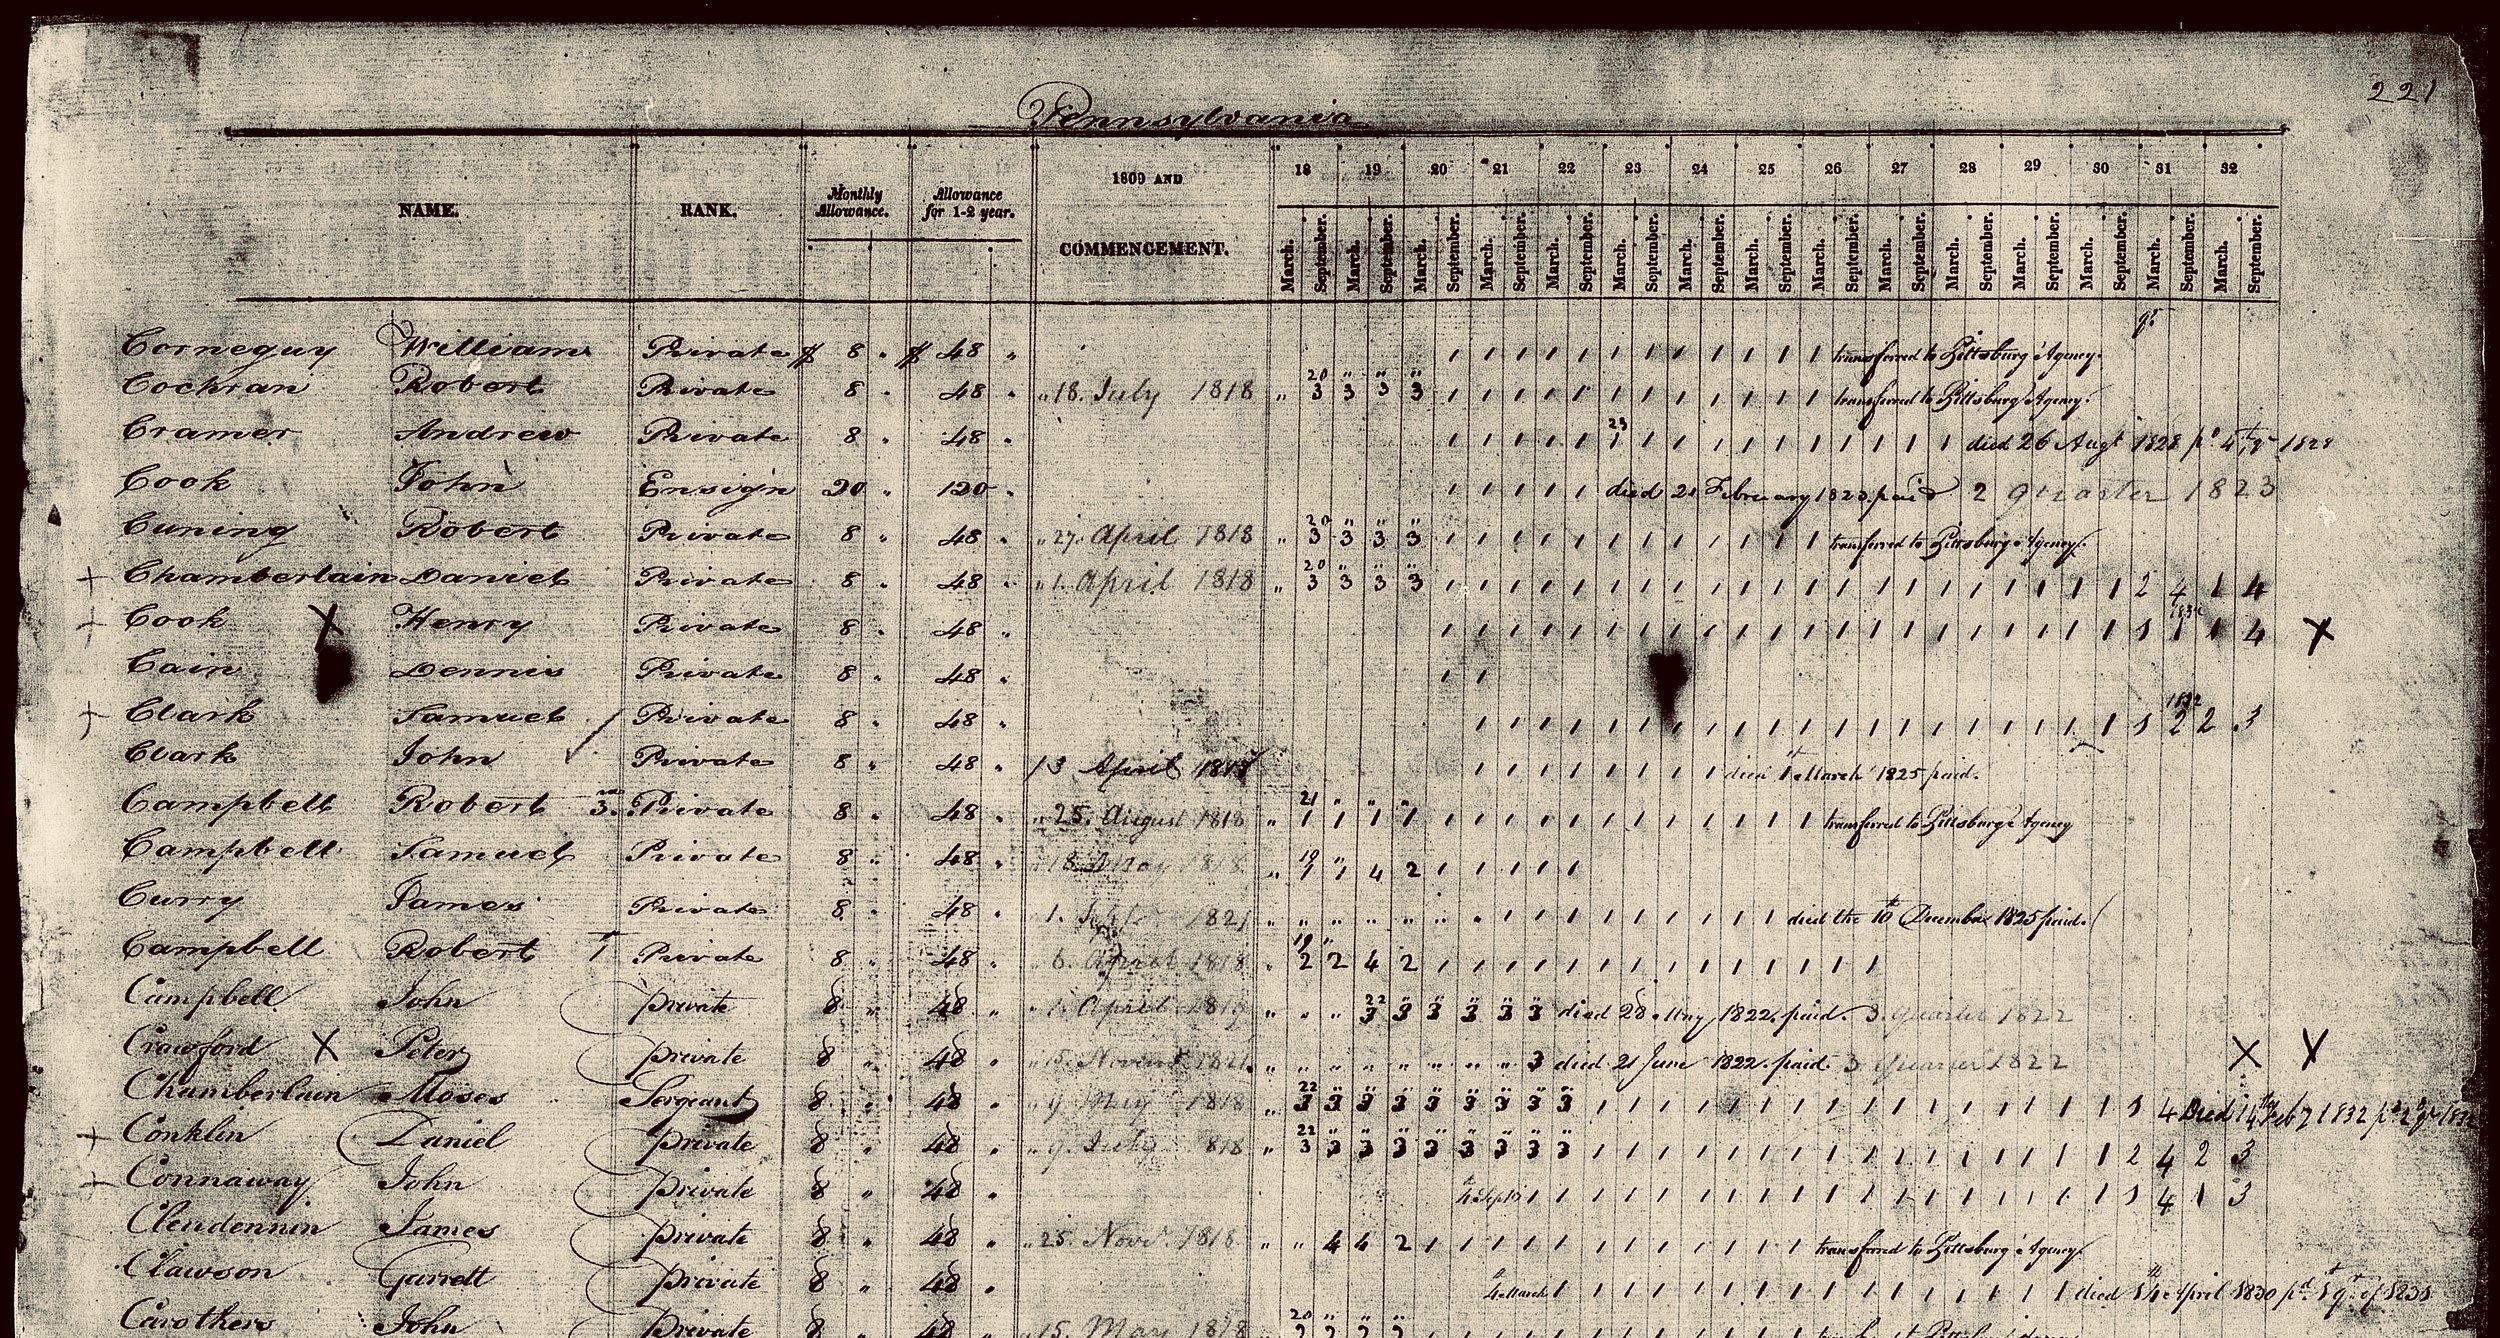 221
Pennsylvania
NAME. RANK. Monthly Allowance. Allowance for 1-2 year. 1800 AND COMMENCEMENT. 18 19 20 21 22 23 24 25 26 27 28 29 30 31 32
March. September. March. September. March. September. March. September. March. September. March. September. March. September. March. September. March. September. March. September. March. September. March. September. March. September. March. September. March. September.
Corneguy William Private $ 8 " $ 48 " 1 1 1 1 1 1 1 1 1 1 1 1 transferred to Pittsburg Agency.
Cochran Robert Private 8 " 48 " " 18. July 1818 " 20 " " " 3 3 3 3 1 1 1 1 1 1 1 1 1 1 1 1 transferred to Pittsburg Agency.
Cramer Andrew Private 8 " 48 " 1 1 1 1 1 23 1 1 1 1 1 1 1 1 1 1 1 died 26 Augt 1828 pd 4th qr 1828
Cook John Ensign 20 " 120 " 1 1 1 1 1 died 21 February 1823. paid 2 quarter 1823
Cuning Robert Private 8 " 48 " " 27. April 1818 " 20 " " " 3 3 3 3 1 1 1 1 1 1 1 1 1 1 1 1 transferred to Pittsburg Agency.
+ Chamberlain Daniel Private 8 " 48 " " 1. April 1818 " 20 " " " 3 3 3 3 1 1 1 1 1 1 1 1 1 1 1 1 1 1 1 1 1 1 1 1 1 2 4 1 4
+ Cook X Henry Private 8 " 48 " 1 1 1 1 1 1 1 1 1 1 1 1 1 1 1 1 1 1 1 1 1 1 1 1 4 X
Cain Dennis Private 8 " 48 " 1 1
+ Clark Samuel Private 8 " 48 " 1 1 1 1 1 1 1 1 1 1 1 1 1 1 1 1 1 1 1 1 1 1832 2 2 3
Clark John Private 8 " 48 " 13 April 1818 1 1 1 1 1 1 1 1 died 1st March 1825 paid.
Campbell Robert 3. Private 8 " 48 " " 25. August 1818 " 21 " " " 1 1 1 1 1 1 1 1 1 1 1 1 1 1 1 1 transferred to Pittsburg Agency
Campbell Samuel Private 8 " 48 " 18. May 1818. " 19 " 1 1 4 2 1 1 1 1 1
Curry James Private 8 " 48 " 1. Septr 1821 " " " " " " " 1 1 1 1 1 1 1 1 1 died the 10th December 1825 paid.
Campbell Robert 1 Private 8 " 48 " " 6. April 1818 " 19 " 2 2 4 2 1 1 1 1 1 1 1 1 1 1 1 1 1 1
Campbell John private 8 " 48 " " 1. April 1819 " " " 22 " " " " " 3 3 3 3 3 3 died 28 May 1822. paid. 3. quarter 1822
Crawford X Peter private 8 " 48 " " 15. Novemr 1821. " " " " " " " " 3 died 21 June 1822. paid. 3 quarter 1822 X X
Chamberlain Moses Sergeant 8 " 48 " " 9. May 1818 " 22 " " " " " " " " 3 3 3 3 3 3 3 3 3 1 1 1 1 1 1 1 1 1 1 1 1 1 1 1 1 1 4 Died 14th Feby 1832 pd 2d qr 1832
+ Conklin Daniel private 8 " 48 " " 9. July 1818 " 22 " " " " " " " " 3 3 3 3 3 3 3 3 3 1 1 1 1 1 1 1 1 1 1 1 1 1 1 1 1 2 4 2 3
+ Connaway John private 8 " 48 " 4th Sept 1 1 1 1 1 1 1 1 1 1 1 1 1 1 1 1 1 1 1 4 1 3
Clendennin James private 8 " 48 " " 25. Novr. 1818 " " 4 4 2 1 1 1 1 1 1 1 1 1 1 1 1 transferred to Pittsburg Agency.
Clawson Garrett private 8 " 48 " 4th March 1 1 1 1 1 1 1 1 1 1 1 1 1 1 1 1 died 14th April 1830 pd. 1st qr. of 1831
Carothers John private 8 " 48 " 15. May 1818 20 " " "